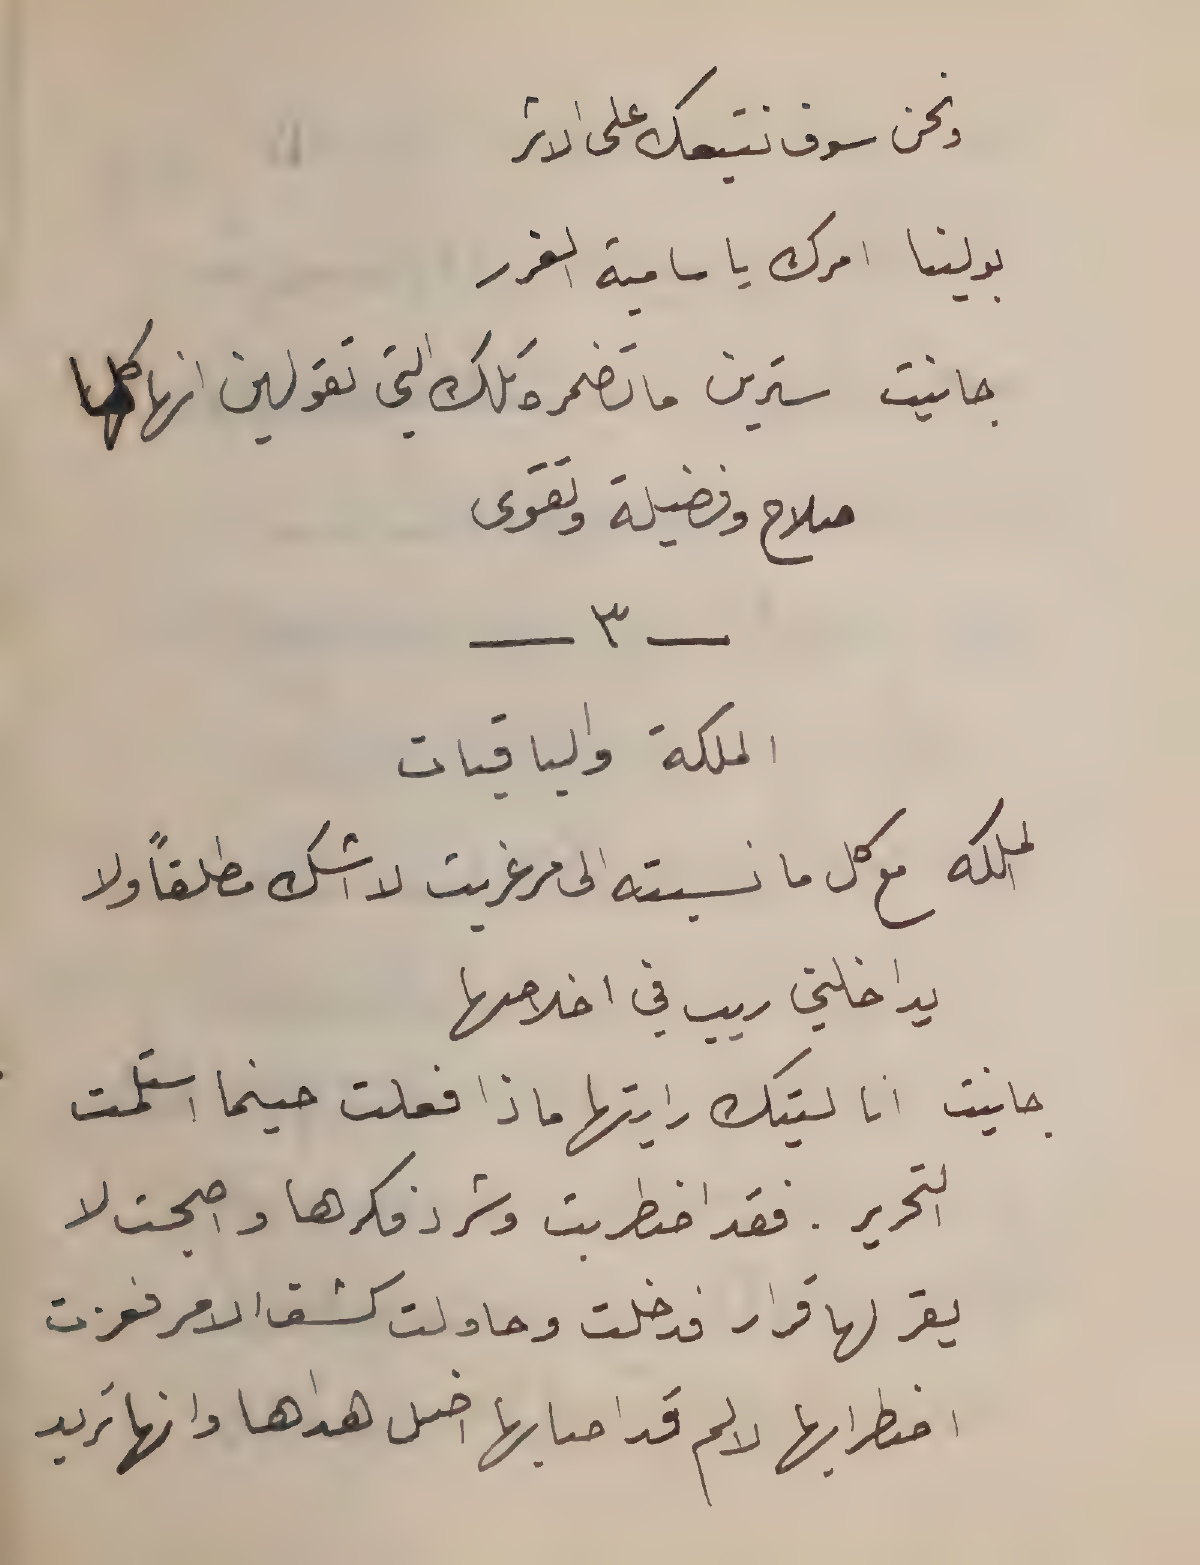 ونحن سوف نتبعك على الاثر
بولينا امرك يا سامية القدر
جانيت سترين ما تضمره تلك التي تقولين انها كلها
صلاح وفضيلة وتقوى
— ٣ —
الملكة والباقيات
الملكه مع كل ما نسبته الى مرغريت لا اشك مطلقاً ولا
يداخلني ريب في اخلاصها
جانيت انا ليتك رايتها ماذا فعلت حينما استلمت
التحرير . فقد اضطربت وشرد فكرها واصبحت لا
يقر لها قرار فدخلت وحاولت كشف الامر فعزت
اضطرابها لالم قد اصابها اضل هداها وانها تريد